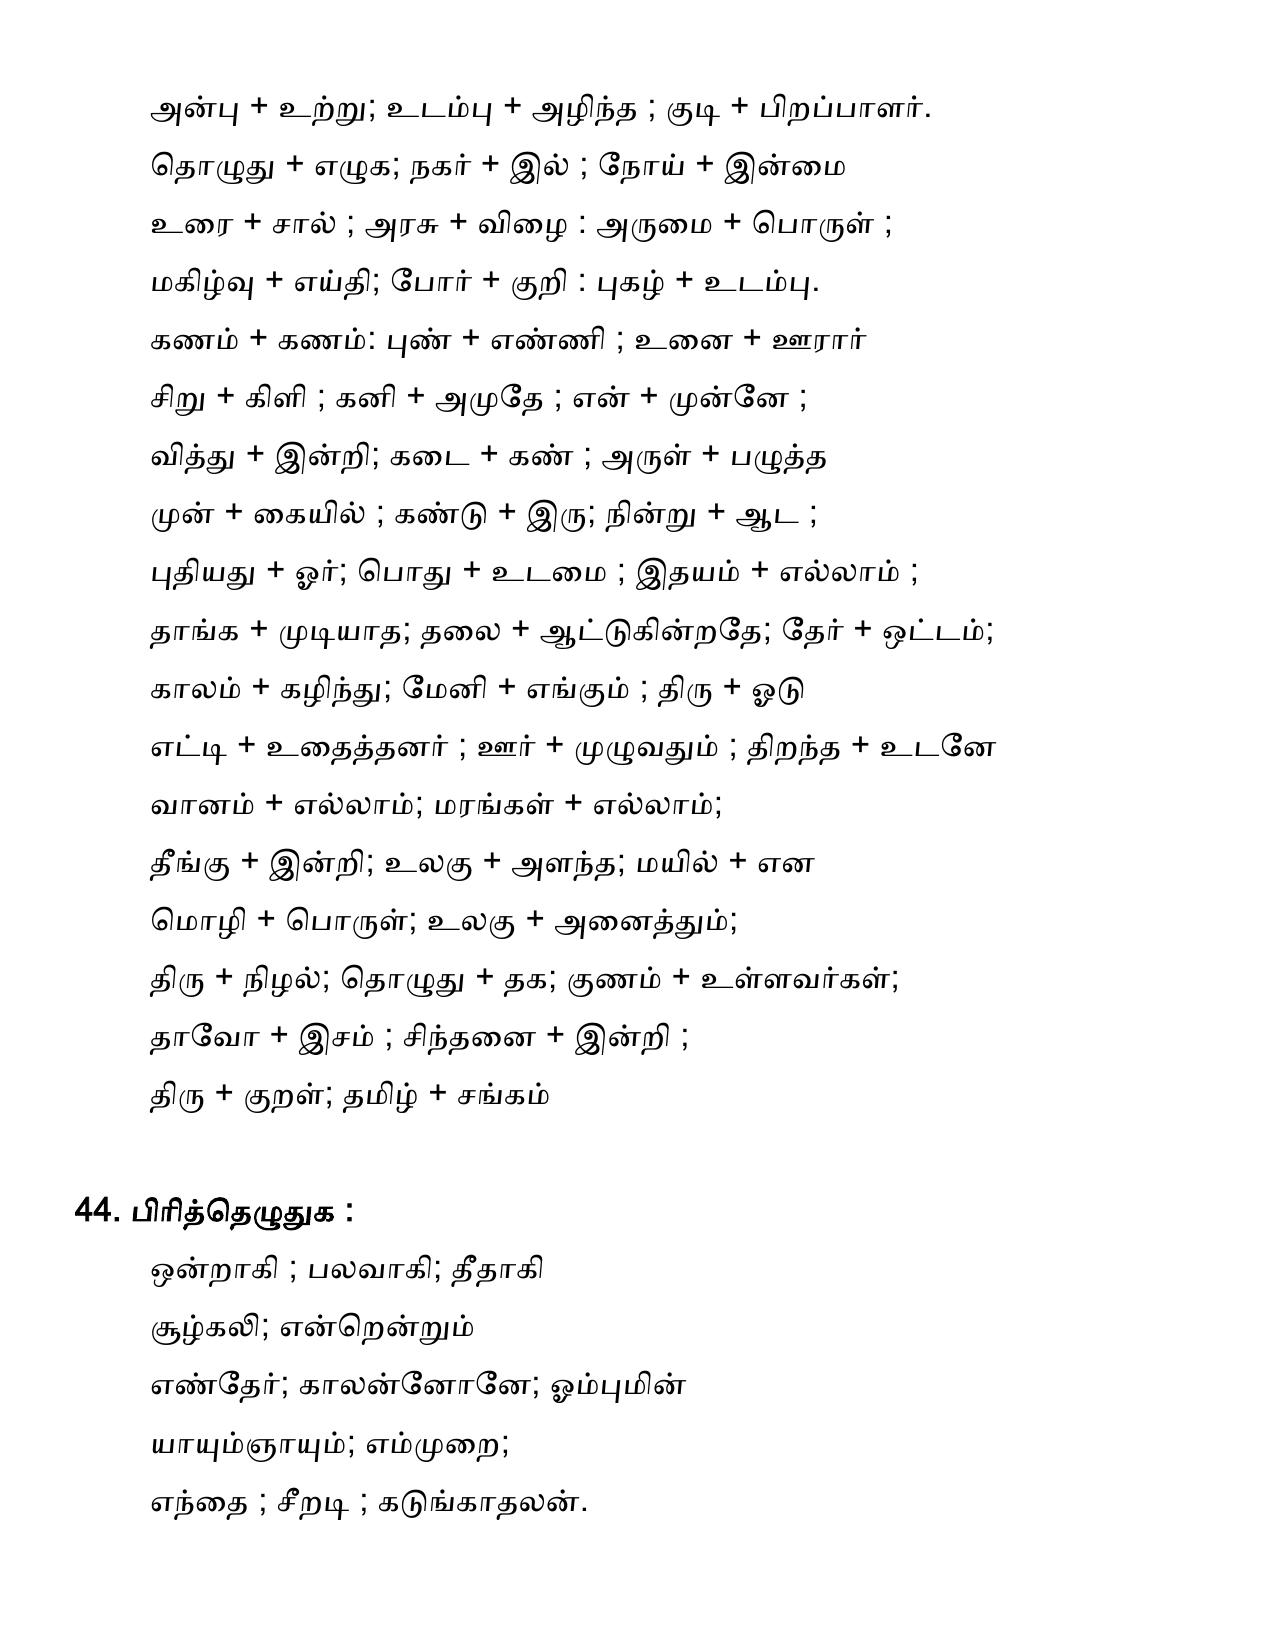 அன்பு + உற்று; உடம்பு + அழிந்த ; குடி + பிறப்பாளர்.
தொழுது + எழுக; நகர் + இல் ; நோய் + இன்மை
உரை + சால் ; அரசு + விழை : அருமை + பொருள் ;
மகிழ்வு + எய்தி; போர் + குறி : புகழ் + உடம்பு.
கணம் + கணம்: புண் + எண்ணி ; உனை + ஊரார்
சிறு + கிளி ; கனி + அமுதே ; என் + முன்னே ;
வித்து + இன்றி; கடை + கண் ; அருள் + பழுத்த
முன் + கையில் ; கண்டு + இரு; நின்று + ஆட ;
புதியது + ஓர்; பொது + உடமை ; இதயம் + எல்லாம் ;
தாங்க + முடியாத; தலை + ஆட்டுகின்றதே; தேர் + ஒட்டம்;
காலம் + கழிந்து; மேனி + எங்கும் ; திரு + ஓடு
எட்டி + உதைத்தனர் ; ஊர் + முழுவதும் ; திறந்த + உடனே
வானம் + எல்லாம்; மரங்கள் + எல்லாம்;
தீங்கு + இன்றி; உலகு + அளந்த; மயில் + என
மொழி + பொருள்; உலகு + அனைத்தும்;
திரு + நிழல்; தொழுது + தக; குணம் + உள்ளவர்கள்;
தாவோ + இசம் ; சிந்தனை + இன்றி ;
திரு + குறள்; தமிழ் + சங்கம்
44. பிரித்தெழுதுக :
ஒன்றாகி ; பலவாகி; தீதாகி
சூழ்கலி; என்றென்றும்
எண்தேர்; காலன்னோனே; ஓம்புமின்
யாயும்ஞாயும்; எம்முறை;
எந்தை ; சீறடி ; கடுங்காதலன்.